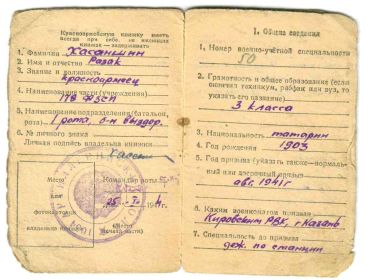 Красноармейскую книжку иметь
всегда при себе. Не имеющих
книжек — задерживать
1. Фамилия Хасаншин
2. Имя и отчество Разак
3. Звание и должность
красноармеец
4. Наименование части (учреждения)
178 ФЗСП
5. Наименование подразделения (батальон,
рота) 1 рота, б-н выздор.
6. № личного знака
Личная подпись владельца книжки
Место
Командир роты
или
фотокарточки
владельца книжки
(Место
печати части)
I. Общие сведения
1. Номер военно-учётной специальности
50
2. Грамотность и общее образование (если
окончил техникум, рабфак или вуз, то
указать его название)
3 класса
3. Национальность татарин
4. Год рождения 1903
5. Год призыва (указать также—нормальный
или досрочный призыв)
авг. 1941 г
6. Каким военкоматом призван
Кировским РВК, г. Казань
7. Специальность до призыва
деж. по станции